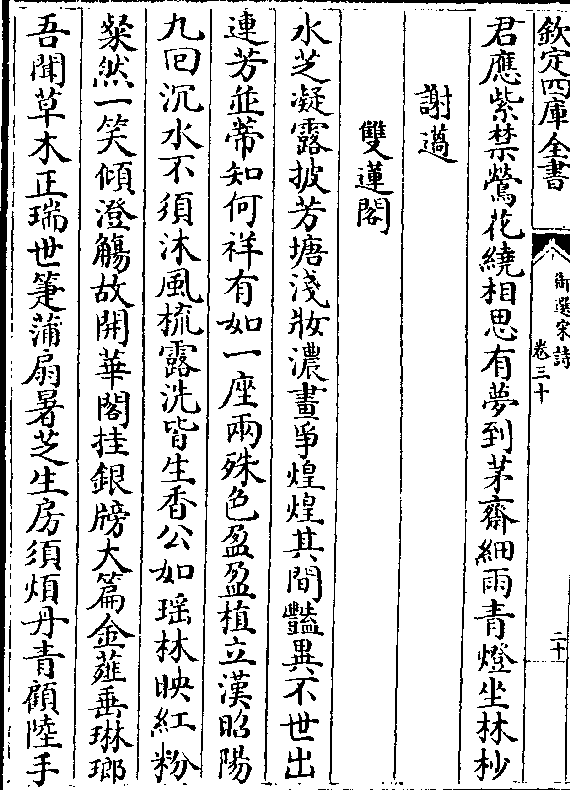 欽定四庫全書
御選宋詩
卷三十
二十
君應紫禁鶯花繞相思有夢到茅齋細雨青燈坐林杪
謝薖
雙蓮閣
水芝凝露披芳塘淺妝濃畫爭煌煌其間豔異不世出
連芳並蒂知何祥有如一座兩殊色盈盈植立漢昭陽
九回沉水不須沐風梳露洗皆生香公如瑶林映紅粉
粲然一笑傾澄觴故開華閣挂銀牓大篇金薤垂琳瑯
吾聞草木正瑞世箑蒲扇暑芝生房須煩丹青顧陸手